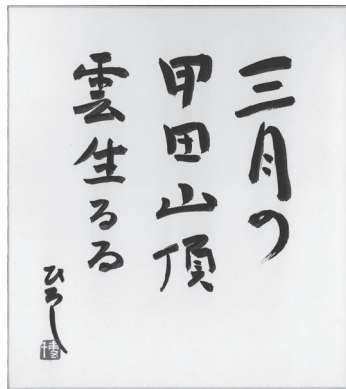 三月の
甲田山頂
雲生るる
ひろし
博